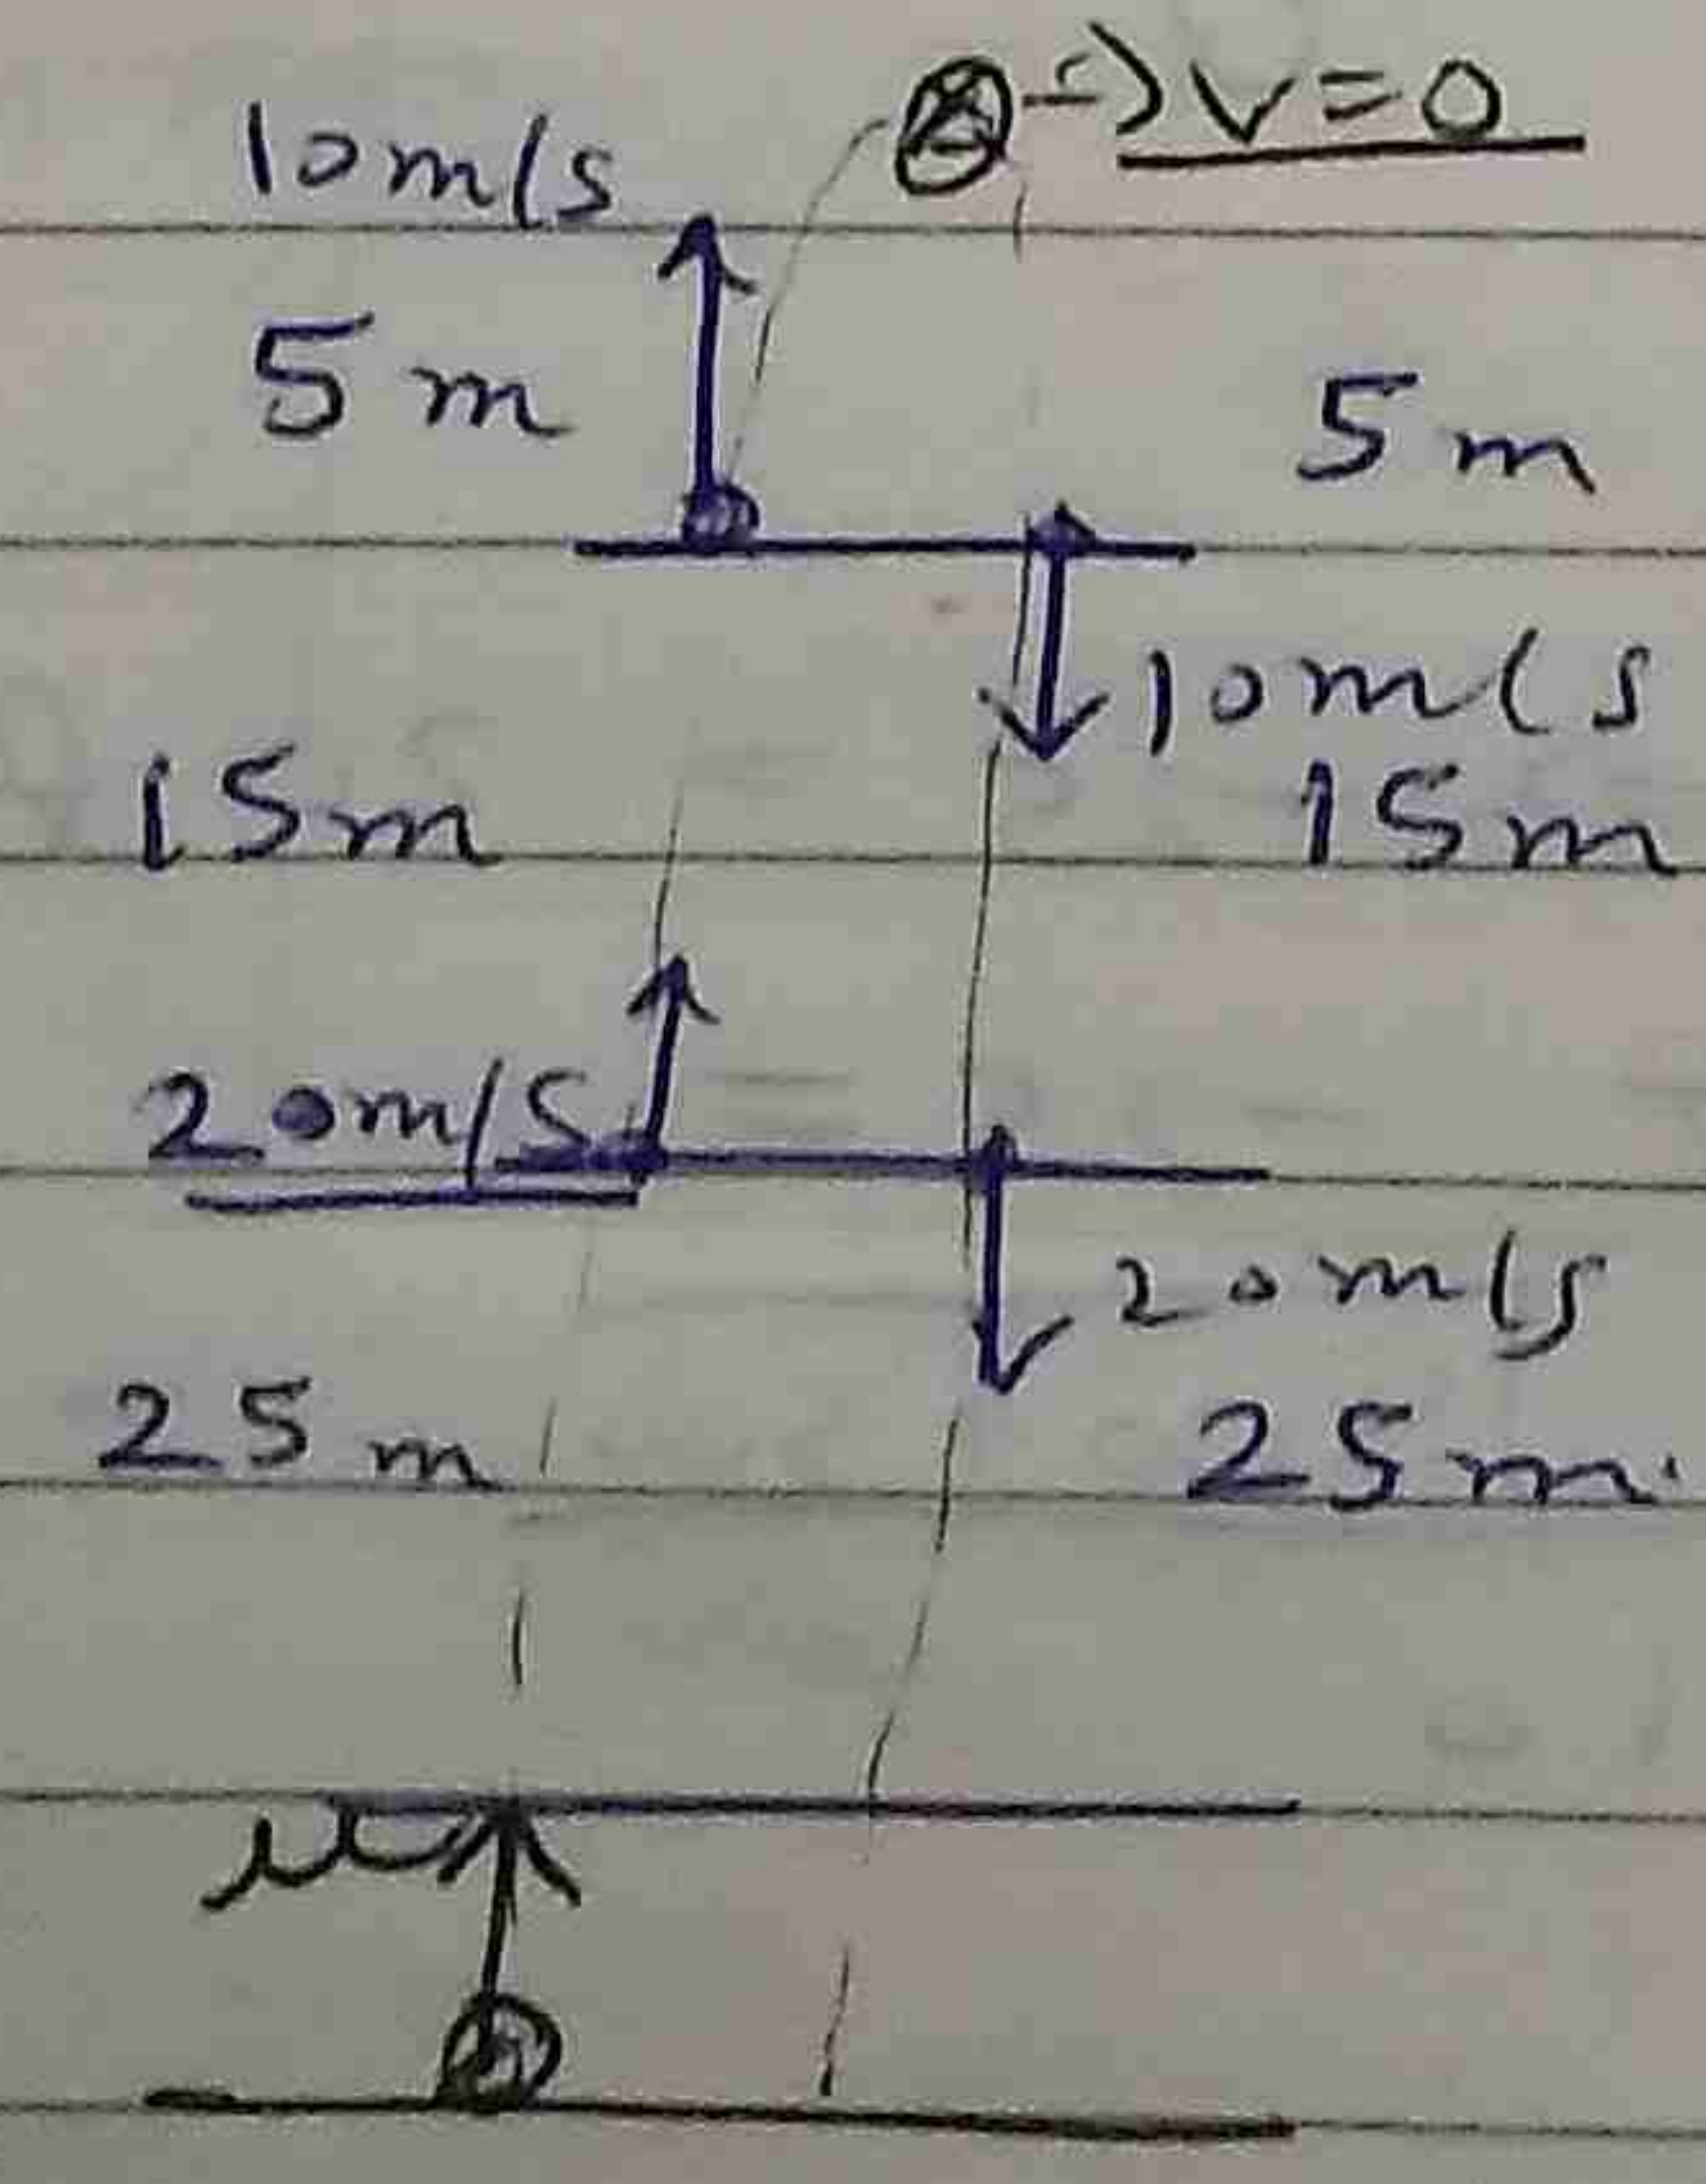 → v=0
10m/s
5m 5m
10m/s
15m 15m
20m/s
20m/s
25m 25m
u